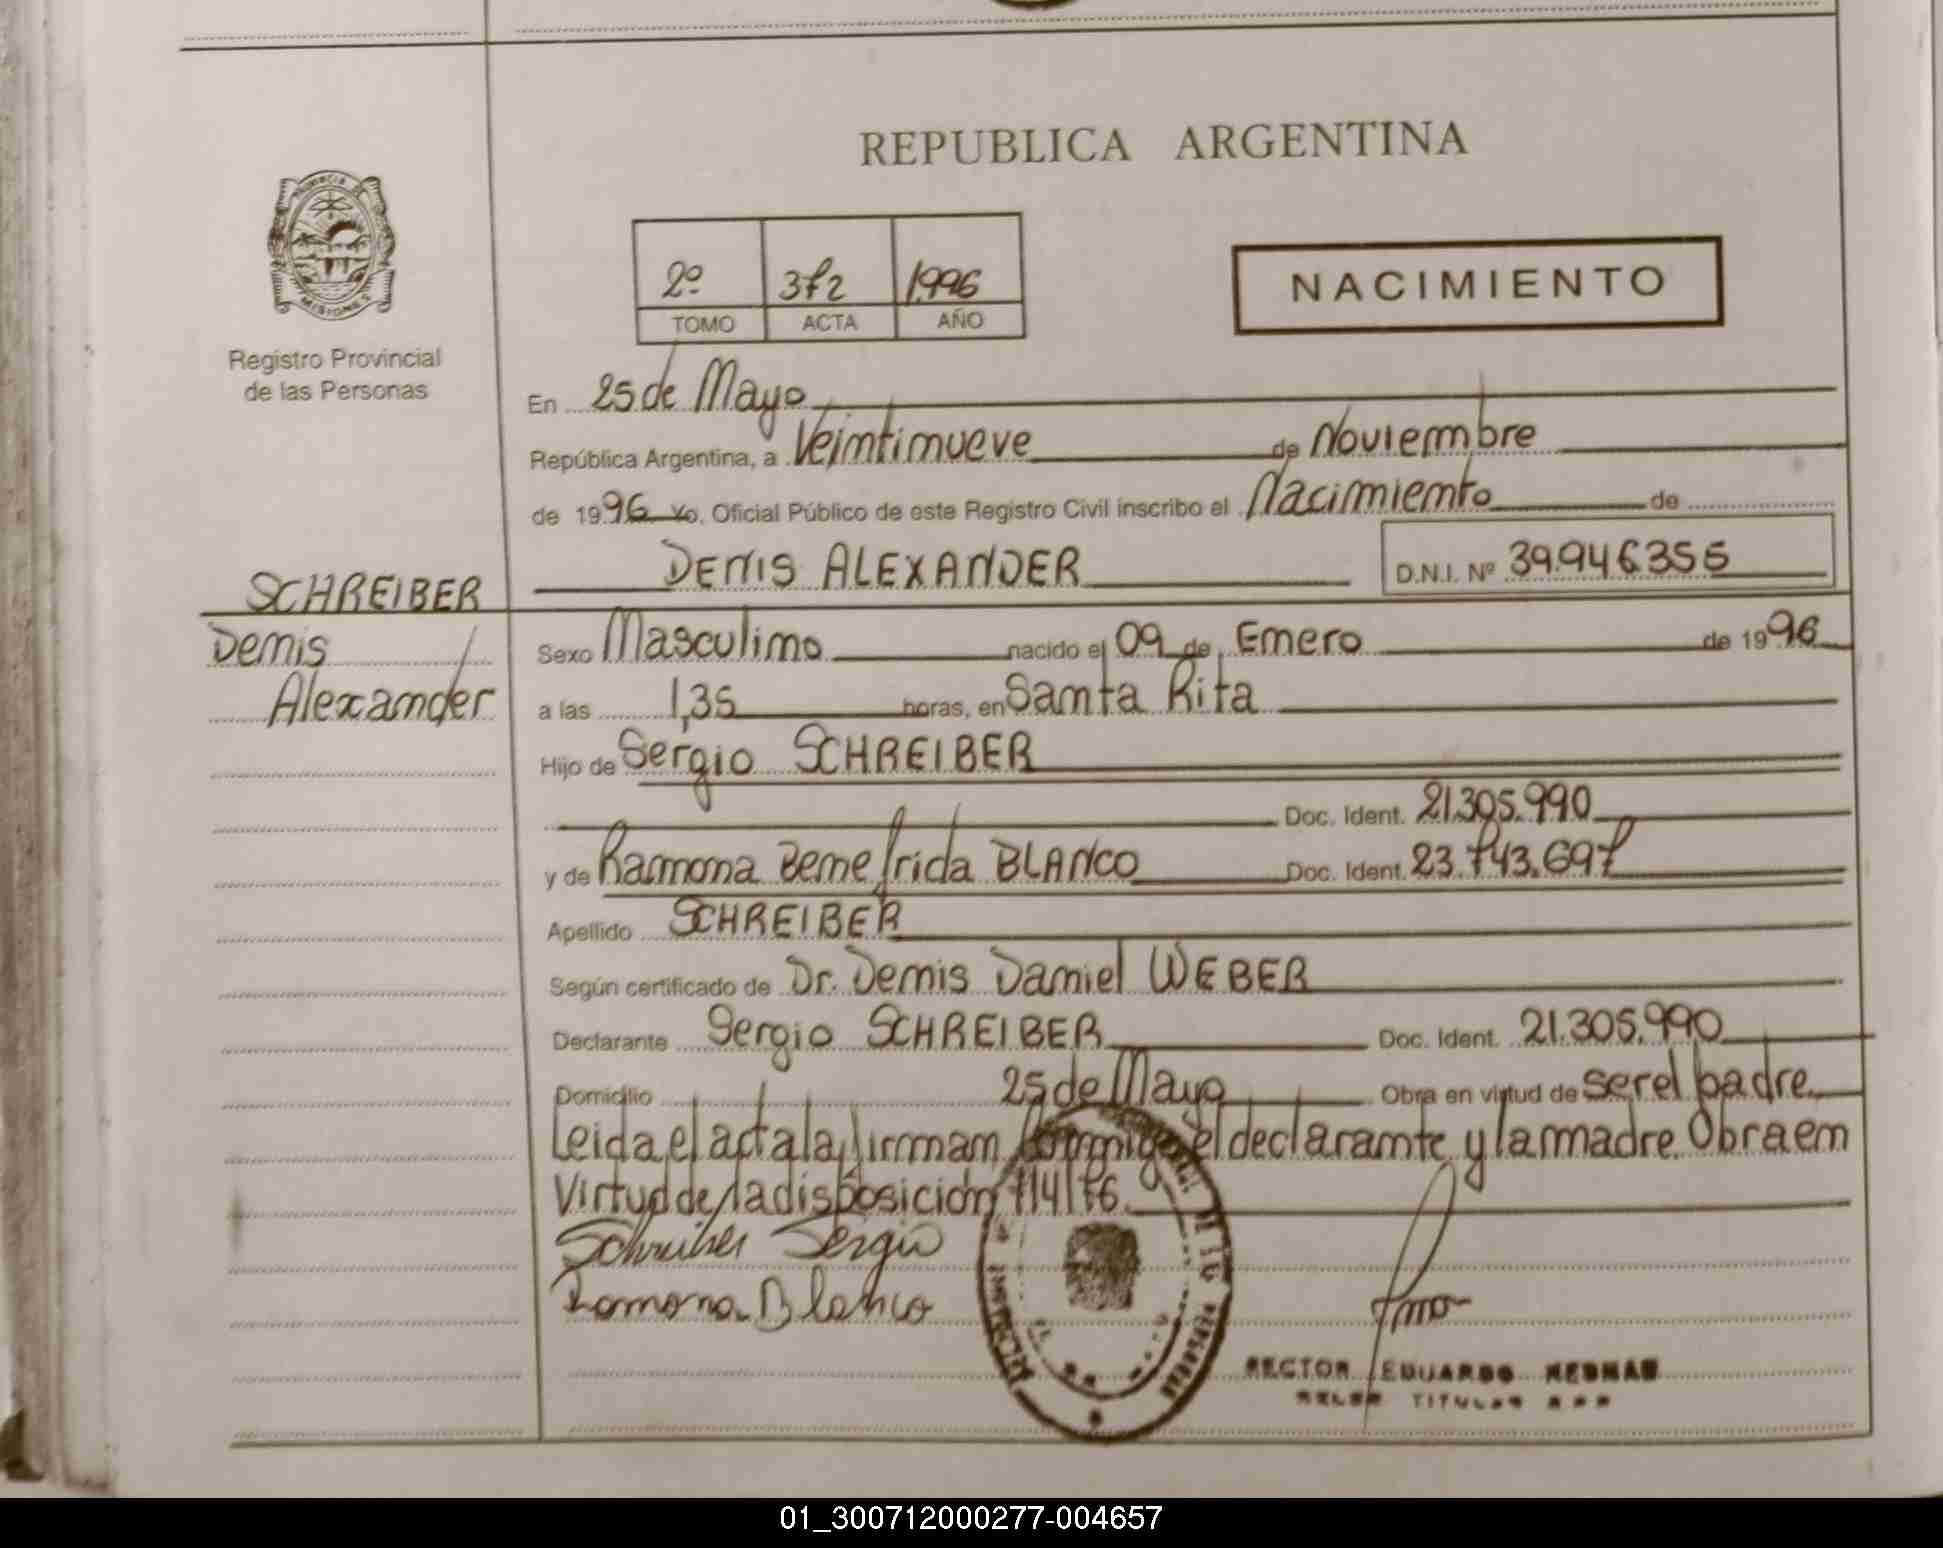 REPUBLICA ARGENTINA
2º 372 1996
TOMO ACTA AÑO
NACIMIENTO
Registro Provincial
de las Personas
En 25 de Mayo
República Argentina, a Veintinueve de Noviembre
de 1996 Yo, Oficial Público de este Registro Civil inscribo el Nacimiento de
DENIS ALEXANDER D.N.I. Nº 39.946.355
SCHREIBER
Denis
Alexander
Sexo Masculino nacido el 09 de Enero de 1996
a las 1,35 horas, en Santa Rita
Hijo de Sergio SCHREIBER
Doc. Ident. 21.305.990
y de Ramona Benefrida BLANCO Doc. Ident. 23.743.697
Apellido SCHREIBER
Según certificado de Dr. Denis Daniel WEBER
Declarante Sergio SCHREIBER Doc. Ident. 21.305.990
Domicilio 25 de Mayo Obra en virtud de ser el padre.
Leida el acta la firman conmigo el declarante y la madre. Obra en
Virtud de la disposición 114/76.
Schreiber Sergio
Ramona Blanco
EDUARDO
TITULAR
01_300712000277-004657